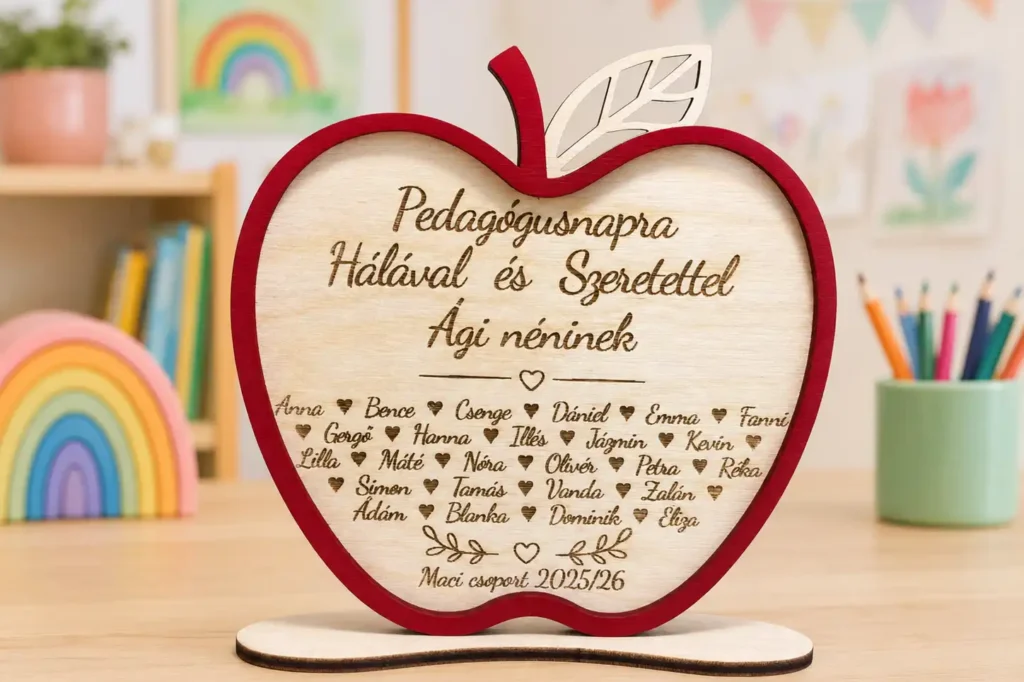 Pedagógusnapra
Hálával és Szeretettel
Ági néninek
Anna ♥ Bence ♥ Csenge ♥ Dániel ♥ Emma ♥ Fanni
♥ Gergő ♥ Hanna ♥ Illés ♥ Jázmin ♥ Kevin ♥
Lilla ♥ Máté ♥ Nóra ♥ Olivér ♥ Petra ♥ Réka
♥ Simon ♥ Tamás ♥ Vanda ♥ Zalán ♥
Ádám ♥ Blanka ♥ Dominik ♥ Eliza
Maci csoport 2025/26